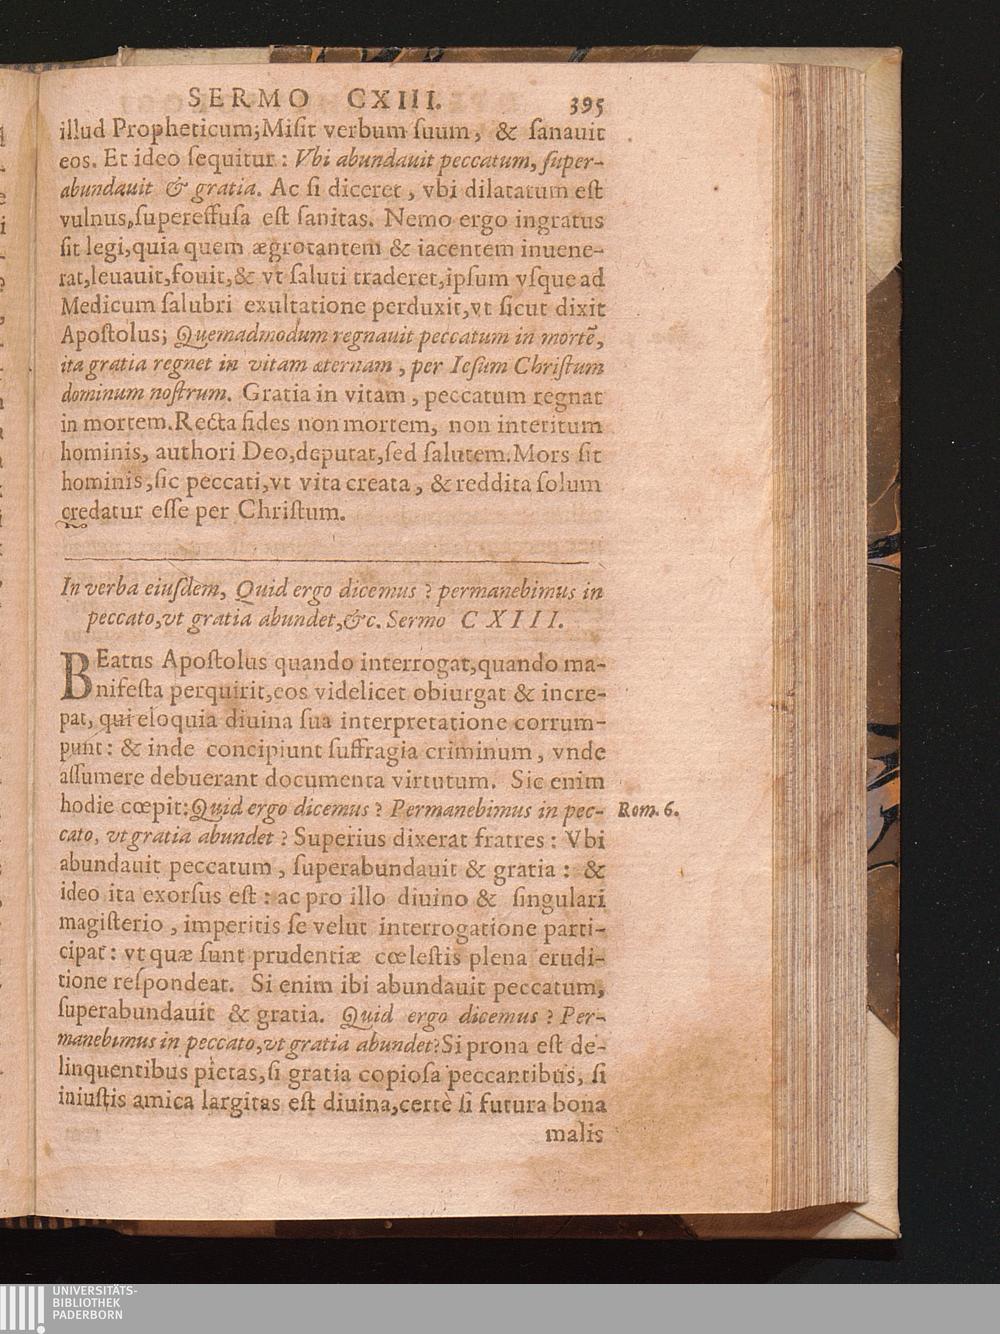 SERMO CXIII. 395
illud Propheticum;Miſit verbum ſuum, & ſanauit
eos. Et ideo ſequitur: Vbi abundauit peccatum, ſuper-
abundauit & gratia. Ac ſi diceret, vbi dilatatum eſt
vulnus, ſupereffuſa eſt ſanitas. Nemo ergo ingratus
ſit legi,quia quem ægrotantem & iacentem inuene-
rat,leuauit,fouit,& vt ſaluti traderet,ipſum vſque ad
Medicum ſalubri exultatione perduxit,vt ſicut dixit
Apoſtolus; Quemadmodum regnauit peccatum in mortē,
ita gratia regnet in vitam æternam, per Ieſum Chriſtum
dominum noſtrum. Gratia in vitam, peccatum regnat
in mortem.Recta fides non mortem, non interitum
hominis, authori Deo,deputat,ſed ſalutem.Mors ſit
hominis,ſic peccati,vt vita creata, & reddita ſolum
credatur eſſe per Chriſtum.
In verba eiuſdem, Quid ergo dicemus? permanebimus in
peccato,vt gratia abundet,&c. Sermo CXIII.
BEatus Apoſtolus quando interrogat,quando ma-
nifeſta perquirit,eos videlicet obiurgat & incre-
pat, qui eloquia diuina ſua interpretatione corrum-
punt: & inde concipiunt ſuffragia criminum, vnde
aſſumere debuerant documenta virtutum. Sic enim
hodie cœpit:Quid ergo dicemus? Permanebimus in pec- Rom. 6.
cato, vt gratia abundet? Superius dixerat fratres: Vbi
abundauit peccatum, ſuperabundauit & gratia: &
ideo ita exorſus eſt: ac pro illo diuino & ſingulari
magiſterio, imperitis ſe velut interrogatione parti-
cipat: vt quæ ſunt prudentiæ cœleſtis plena erudi-
tione reſpondeat. Si enim ibi abundauit peccatum,
ſuperabundauit & gratia. Quid ergo dicemus? Per-
manebimus in peccato,vt gratia abundet?Si prona eſt de-
linquentibus pietas,ſi gratia copioſa peccantibus, ſi
iniuſtis amica largitas eſt diuina,certè ſi futura bona
malis
UNIVERSITÄTS-
BIBLIOTHEK
PADERBORN